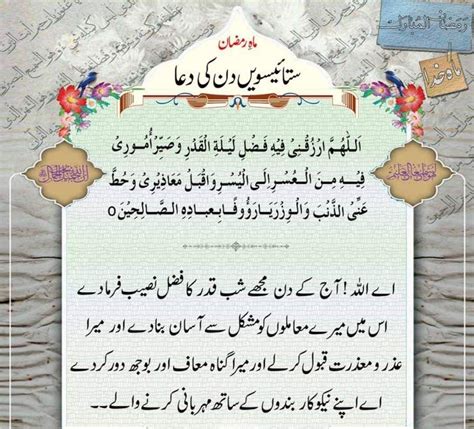 رمضان المبارک
ماہ خدا
ماہِ رمضان
ستائیسویں دن کی دعا
اَللّٰهُمَّ ارْزُقْنِیْ فِیْهِ فَضْلَ لَیْلَةِ الْقَدْرِ وَصَیِّرْ اُمُوْرِیْ
فِیْهِ مِنَ الْعُسْرِ اِلَی الْیُسْرِ وَاقْبَلْ مَعَاذِیْرِیْ وَحُطَّ
عَنِّیَ الذَّنْبَ وَالْوِزْرَ یَارَؤُوْفًا بِعِبَادِهِ الصَّالِحِیْنَ o
اے اللہ! آج کے دن مجھے شب قدر کا فضل نصیب فرما دے
اس میں میرے معاملوں کو مشکل سے آسان بنا دے اور میرا
عذر و معذرت قبول کر لے اور میرا گناہ معاف اور بوجھ دور کر دے
اے اپنے نیکوکار بندوں کے ساتھ مہربانی کرنے والے۔۔